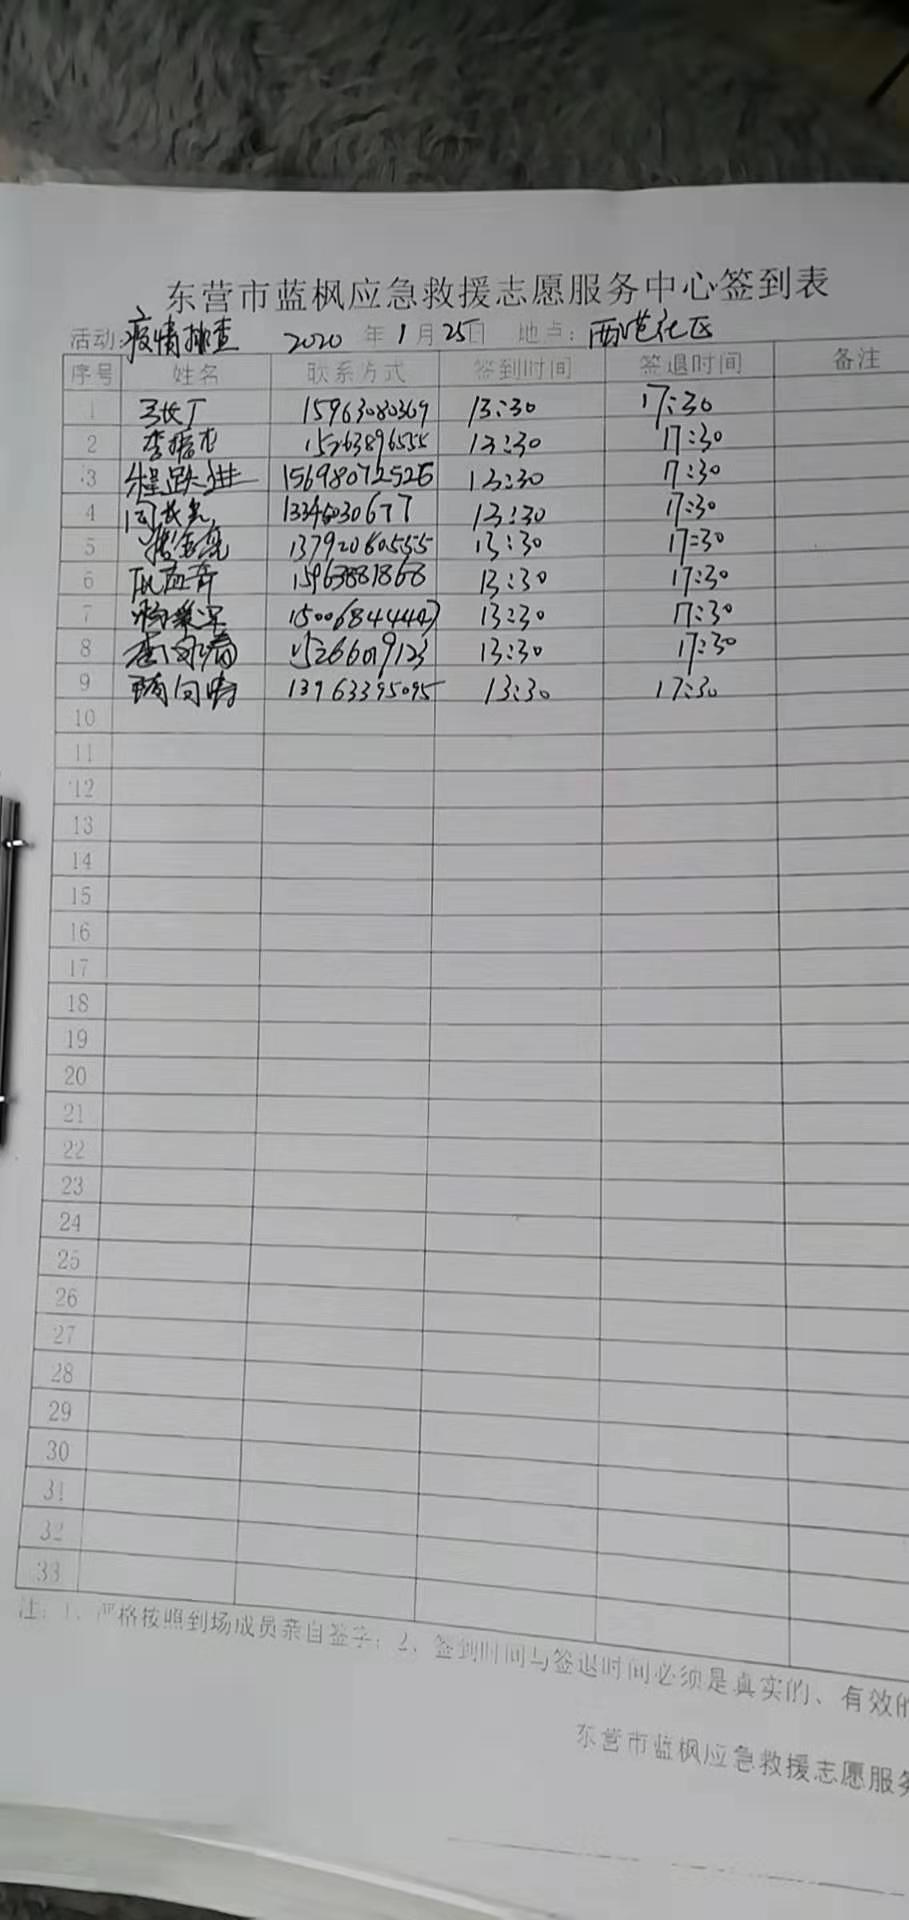 东营市蓝枫应急救援志愿服务中心签到表
活动:疫情排查 2020 年 1 月 25 日 地点:西港社区
序号 姓名 联系方式 签到时间 签退时间 备注
1 15963080369 13:30 17:30
2 15263896555 13:30 17:30
3 程跃进 15698072526 13:30 17:30
4 13:30 17:30
5 13792060555 13:30 17:30
6 15963881868 13:30 17:30
7 13:30 17:30
8 15266019123 13:30 17:30
9 13963395095 13:30 17:30
10
11
12
13
14
15
16
17
18
19
20
21
22
23
24
25
26
27
28
29
30
31
32
33
注:1、严格按照到场成员亲自签字;2、签到时间与签退时间必须是真实的、有效的
东营市蓝枫应急救援志愿服务